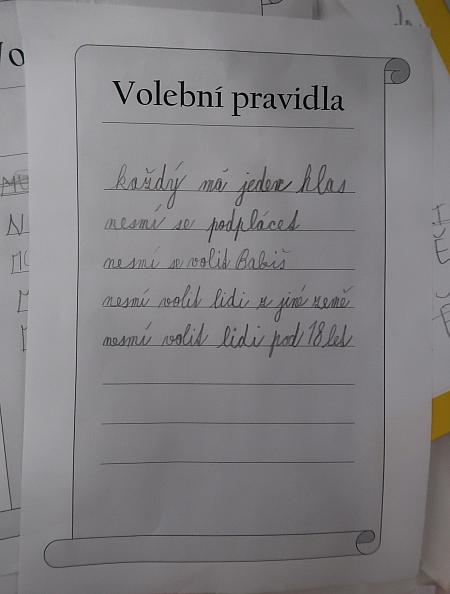 Volební pravidla
každý má jeden hlas
nesmí se podplácet
nesmí se volit Babiš
nesmí volit lidi z jiné země
nesmí volit lidi pod 18 let